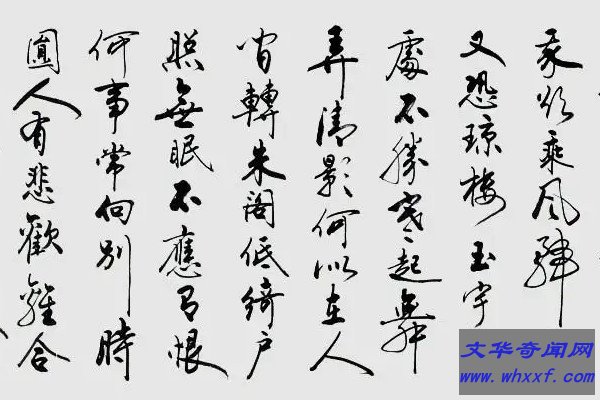 我欲乘風歸
又恐琼楼玉宇
處不勝寒起舞
弄清影何似在人
間轉朱閣低綺戶
照無眠不應有恨
何事常向別時
圓人有悲歡離合
文华奇闻网
www.whxxf.com